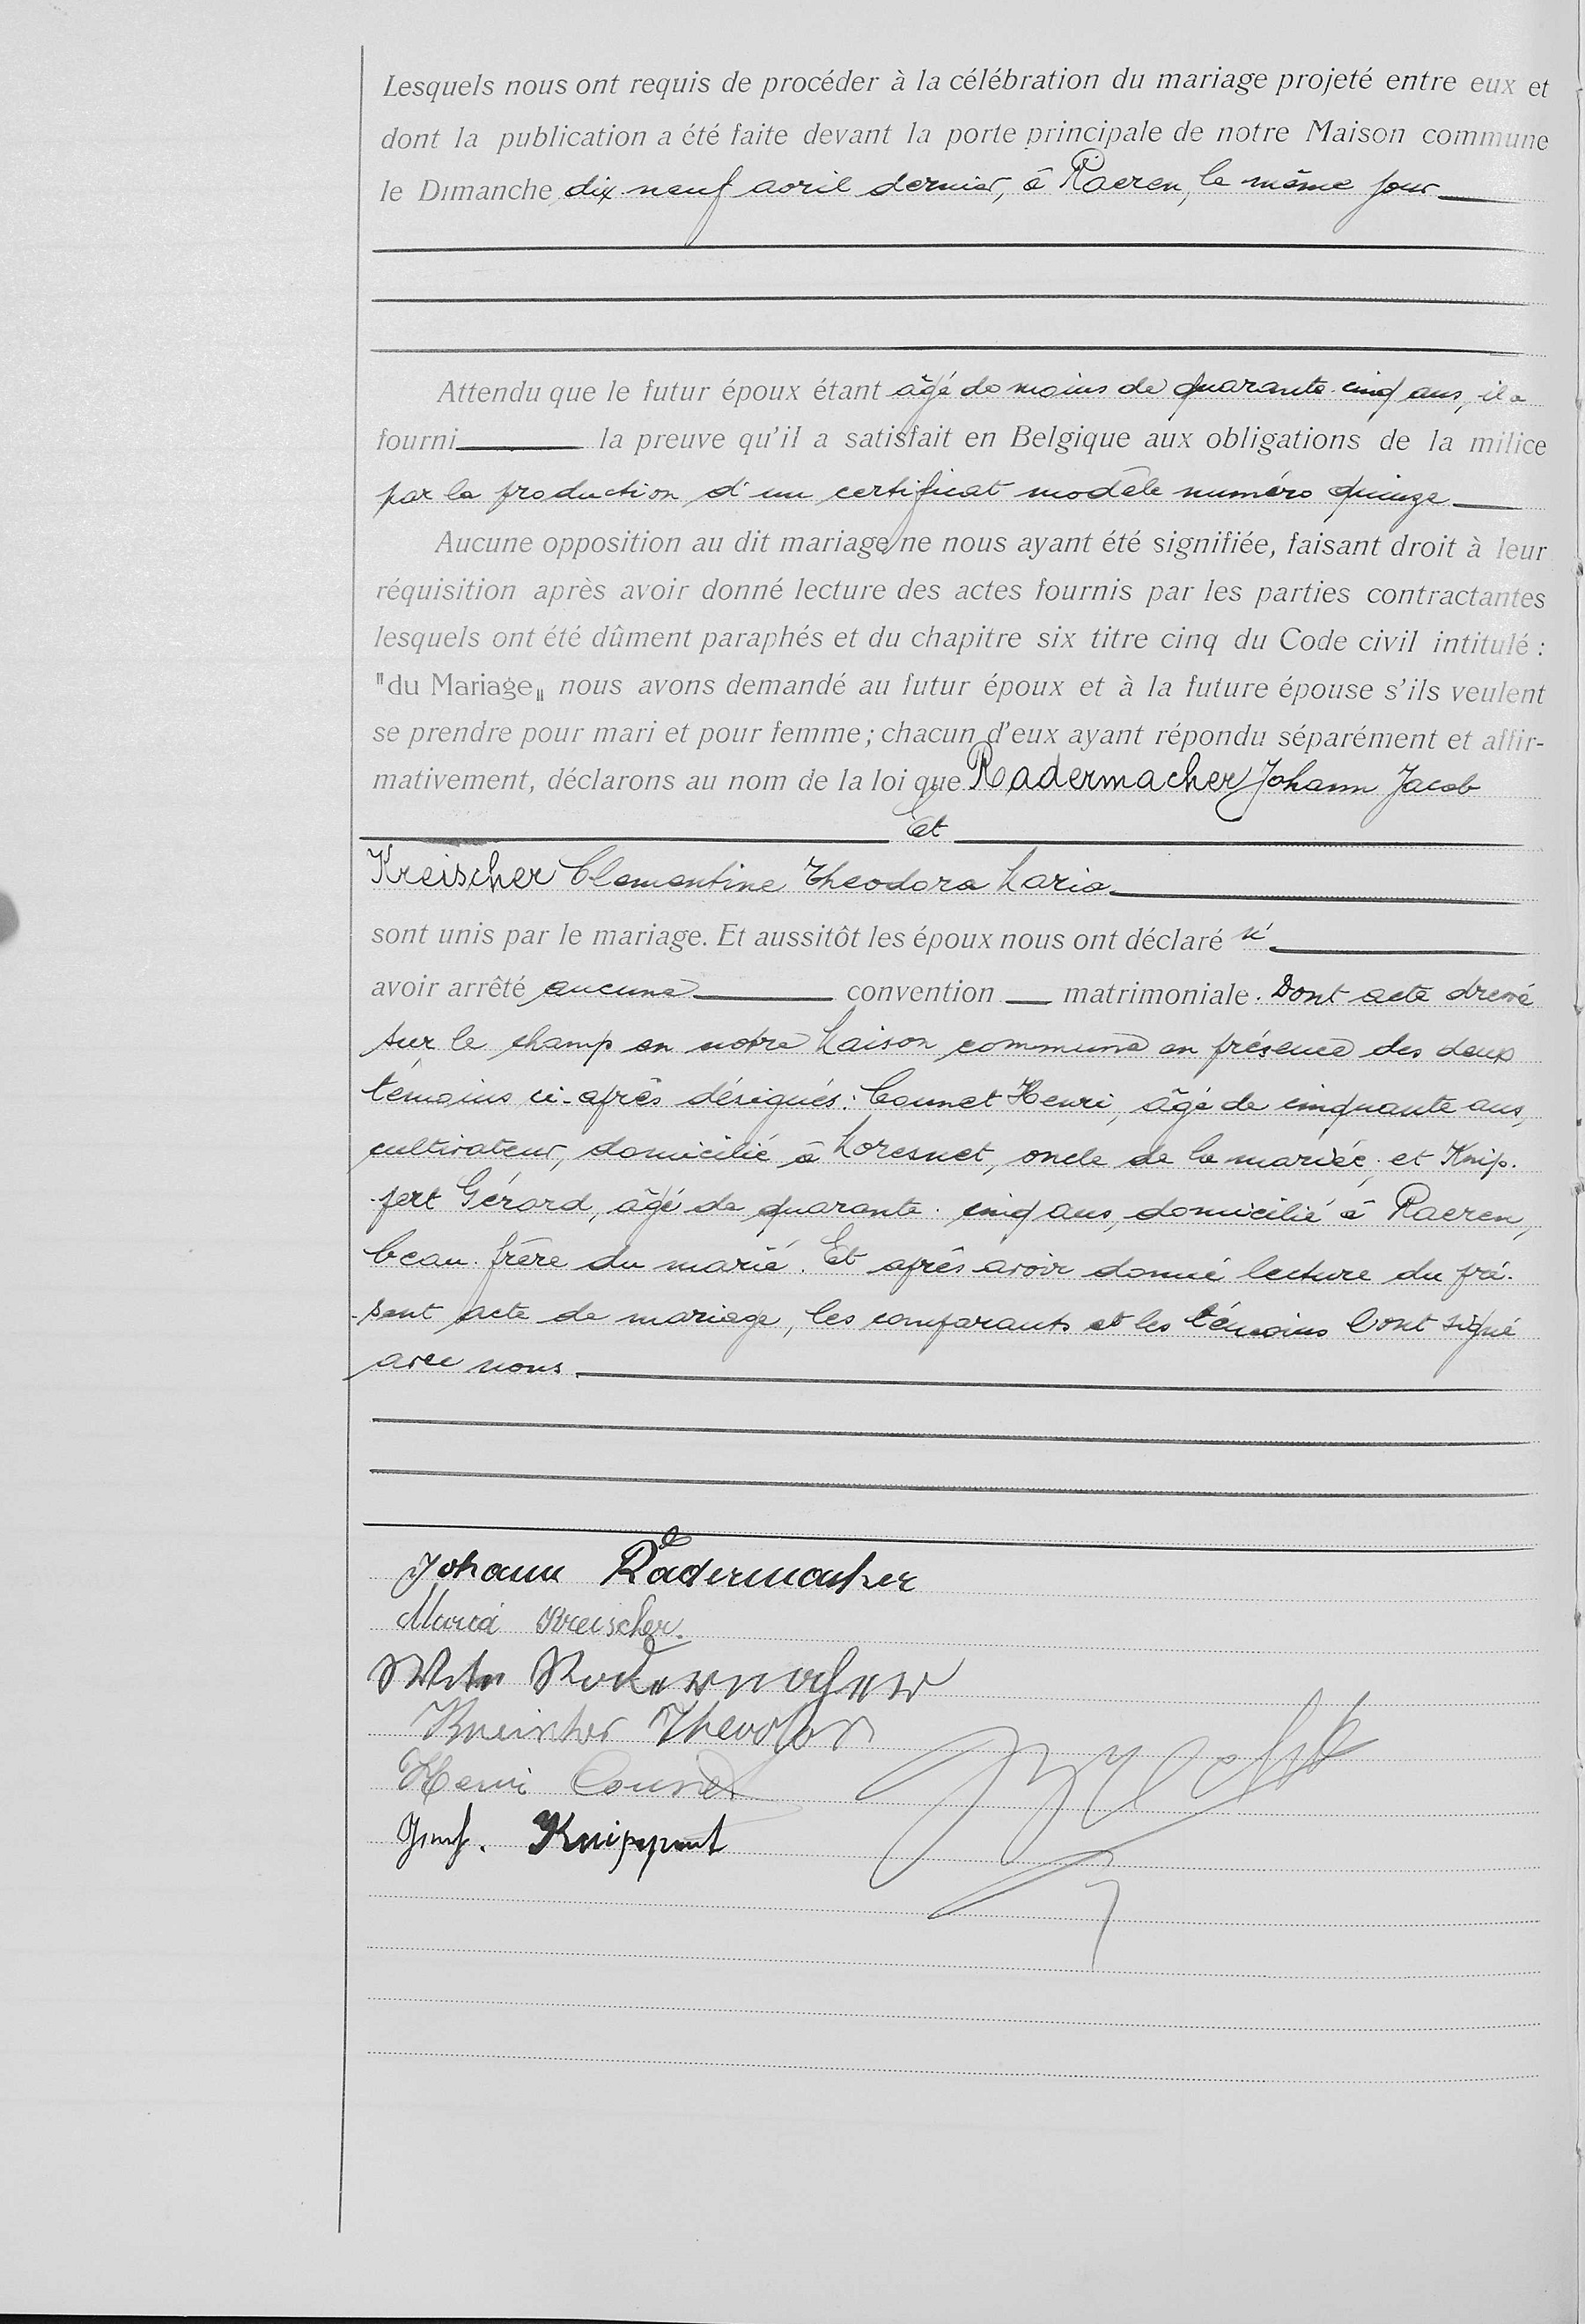 Lesquels nous ont requis de procéder à la célébration du mariage projeté entre eux et
dont la publication a été faite devant la porte principale de notre Maison commune
le Dimanche dix neuf avril dernier, à Raeren, le même jour
Attendu que le futur époux étant âgé de moins de quarante cinq ans, il a
fourni la preuve qu'il a satisfait en Belgique aux obligations de la milice
par la production d'un certificat modèle numéro quinze
Aucune opposition au dit mariage ne nous ayant été signifiée, faisant droit à leur
réquisition après avoir donné lecture des actes fournis par les parties contractantes
lesquels ont été dûment paraphés et du chapitre six titre cinq du Code civil intitulé :
"du Mariage„ nous avons demandé au futur époux et à la future épouse s'ils veulent
se prendre pour mari et pour femme ; chacun d'eux ayant répondu séparément et affir-
mativement, déclarons au nom de la loi que Radermacher Johann Jacob
et
Kreischer Clementine Theodora Maria
sont unis par le mariage. Et aussitôt les époux nous ont déclaré n'
avoir arrêté aucune convention matrimoniale. Dont acte dressé
sur le champ en notre Maison commune en présence des deux
témoins ci-après désignés : Counet Henri, âgé de cinquante ans,
cultivateur, domicilié à Moresnet, oncle de la mariée, et Knip-
pert Gérard, âgé de quarante-cinq ans, domicilié à Raeren,
beau-frère du marié. Et après avoir donné lecture du pré-
-sent acte de mariage, les comparants et les témoins l'ont signé
avec nous.
Johann Radermacher
Maria Kreischer.
Radermacher
Kreischer Theodor
Henri Counet
Knippert